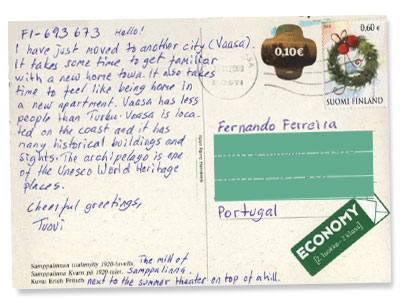 FI-693673 Hello!
I have just moved to another city (Vaasa).
It takes some time to get familiar
with a new home town. It also takes
time to feel like being home in
a new apartment. Vaasa has less
people than Turku. Vaasa is loca-
ted on the coast and it has
many historical buildings and
sights. The archipelago is one
of the Unesco World Heritage
places.
Cheerful greetings,
Tuovi
Samppalinnan tuulimylly 1920-luvulla.
Samppalinna Kvarn på 1920-talet.
Kuva: Erich Fritsch
The mill of
Samppalinna
next to the summer theater on top of a hill.
0,10€
0,60 €
SUOMI FINLAND
Fernando Ferreira
Portugal
ECONOMY
[2. luokka - 2 klass]